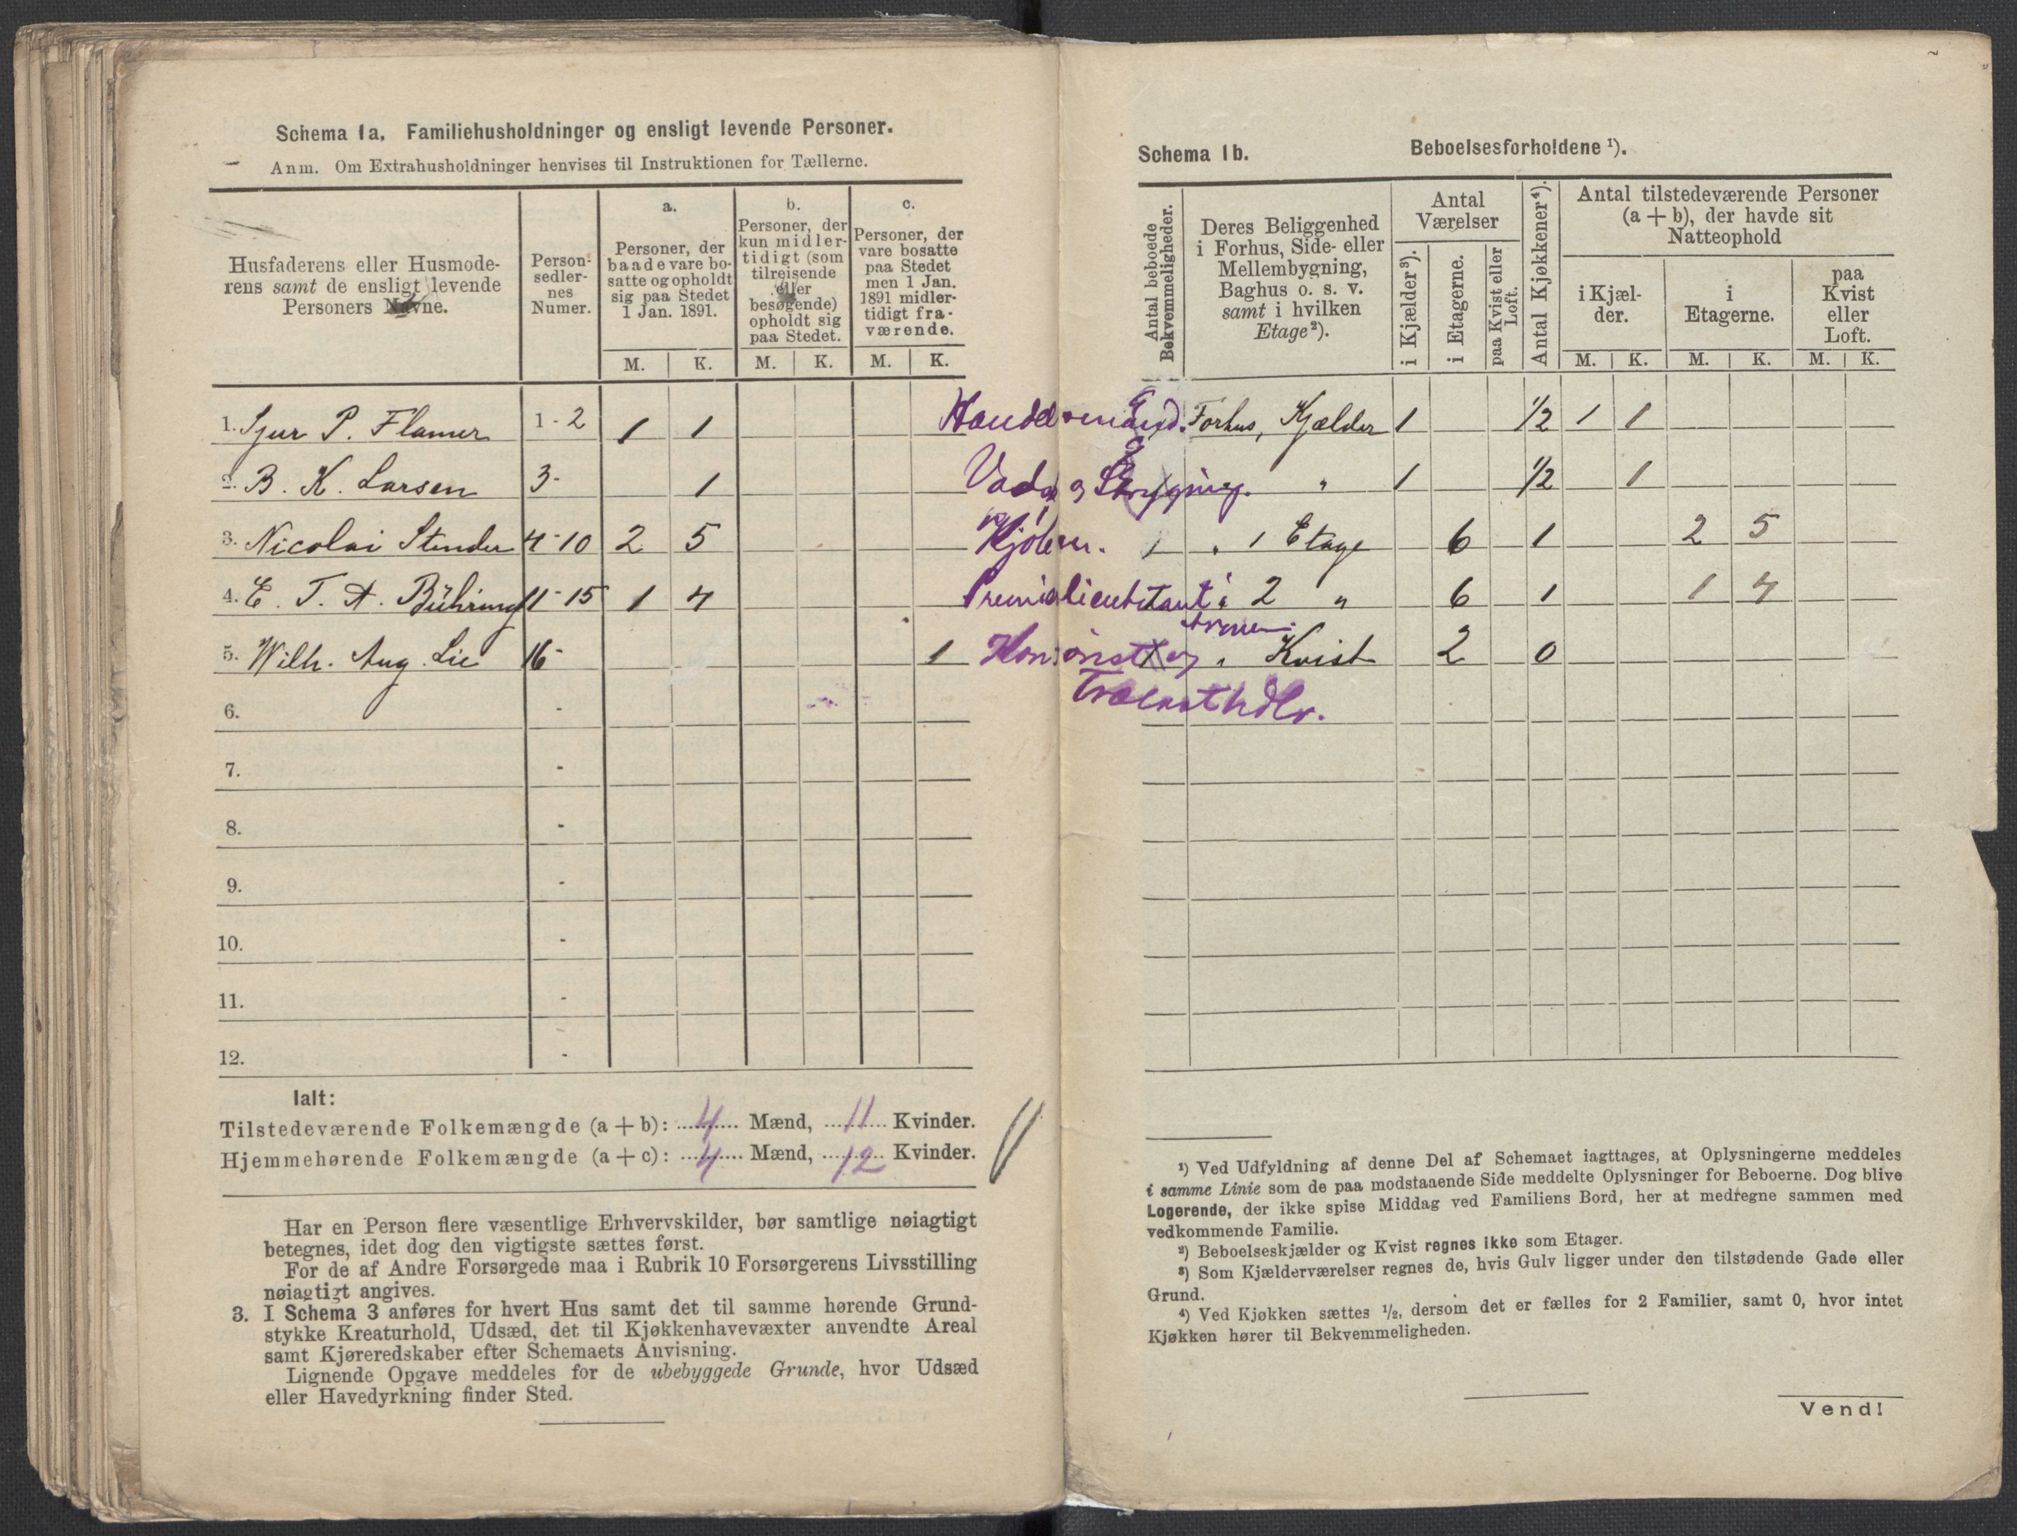 Schema 1a. Familiehusholdninger og ensligt levende Personer.
Anm. Om Extrahusholdninger henvises til Instruktionen for Tællerne.
Husfaderens eller Husmode-
rens samt de ensligt levende
Personers Navne.
Person-
sedler-
nes
Numer.
a.
Personer, der
baade vare bo-
satte og opholdt
sig paa Stedet
1 Jan. 1891.
b.
Personer, der
kun midler-
tidigt (som
tilreisende
eller
besøgende)
opholdt sig
paa Stedet.
c.
Personer, der
vare bosatte
paa Stedet
men 1 Jan.
1891 midler-
tidigt fra-
værende.
M. K. M. K. M. K.
1. Sjur P. Flamer 1-2 1 1
2. B. K. Larsen 3- 1
3. Nicolai Stender 4-10 2 5
4. E. T. A. Bühring 11-15 1 4
5. Wilh. Aug. Lie 16- 1
6. -
7. -
8. -
9. -
10. -
11. -
12. -
Ialt:
Tilstedeværende Folkemængde (a + b): 4 Mænd, 11 Kvinder.
Hjemmehørende Folkemængde (a + c): 4 Mænd, 12 Kvinder.
Har en Person flere væsentlige Erhvervskilder, bør samtlige nøiagtigt
betegnes, idet dog den vigtigste sættes først.
For de af Andre Forsørgede maa i Rubrik 10 Forsørgerens Livsstilling
nøiagtigt angives.
3. I Schema 3 anføres for hvert Hus samt det til samme hørende Grund-
stykke Kreaturhold, Udsæd, det til Kjøkkenhavevæxter anvendte Areal
samt Kjøreredskaber efter Schemaets Anvisning.
Lignende Opgave meddeles for de ubebyggede Grunde, hvor Udsæd
eller Havedyrkning finder Sted.
Schema 1b. Beboelsesforholdene ¹).
Antal beboede
Bekvemmeligheder.
Deres Beliggenhed
i Forhus, Side- eller
Mellembygning,
Baghus o. s. v.
samt i hvilken
Etage²).
Antal
Værelser
i Kjælder ³).
i Etagerne.
paa Kvist eller
Loft.
Antal Kjøkkener⁴).
Antal tilstedeværende Personer
(a + b), der havde sit
Natteophold
i Kjæl-
der.
i
Etagerne.
paa
Kvist
eller
Loft.
M. K. M. K. M. K.
Forhus, Kjælder 1 1/2 1 1
" 1 1/2 1
1 " 1 Etage 6 1 2 5
Premierlieutetant 2 " 6 1 1 4
" Kvist 2 0
¹) Ved Udfyldning af denne Del af Schemaet iagttages, at Oplysningerne meddeles
i samme Linie som de paa modstaaende Side meddelte Oplysninger for Beboerne. Dog blive
Logerende, der ikke spise Middag ved Familiens Bord, her at medregne sammen med
vedkommende Familie.
²) Beboelseskjælder og Kvist regnes ikke som Etager.
³) Som Kjælderværelser regnes de, hvis Gulv ligger under den tilstødende Gade eller
Grund.
⁴) Ved Kjøkken sættes ½, dersom det er fælles for 2 Familier, samt 0, hvor intet
Kjøkken hører til Bekvemmeligheden.
Vend!